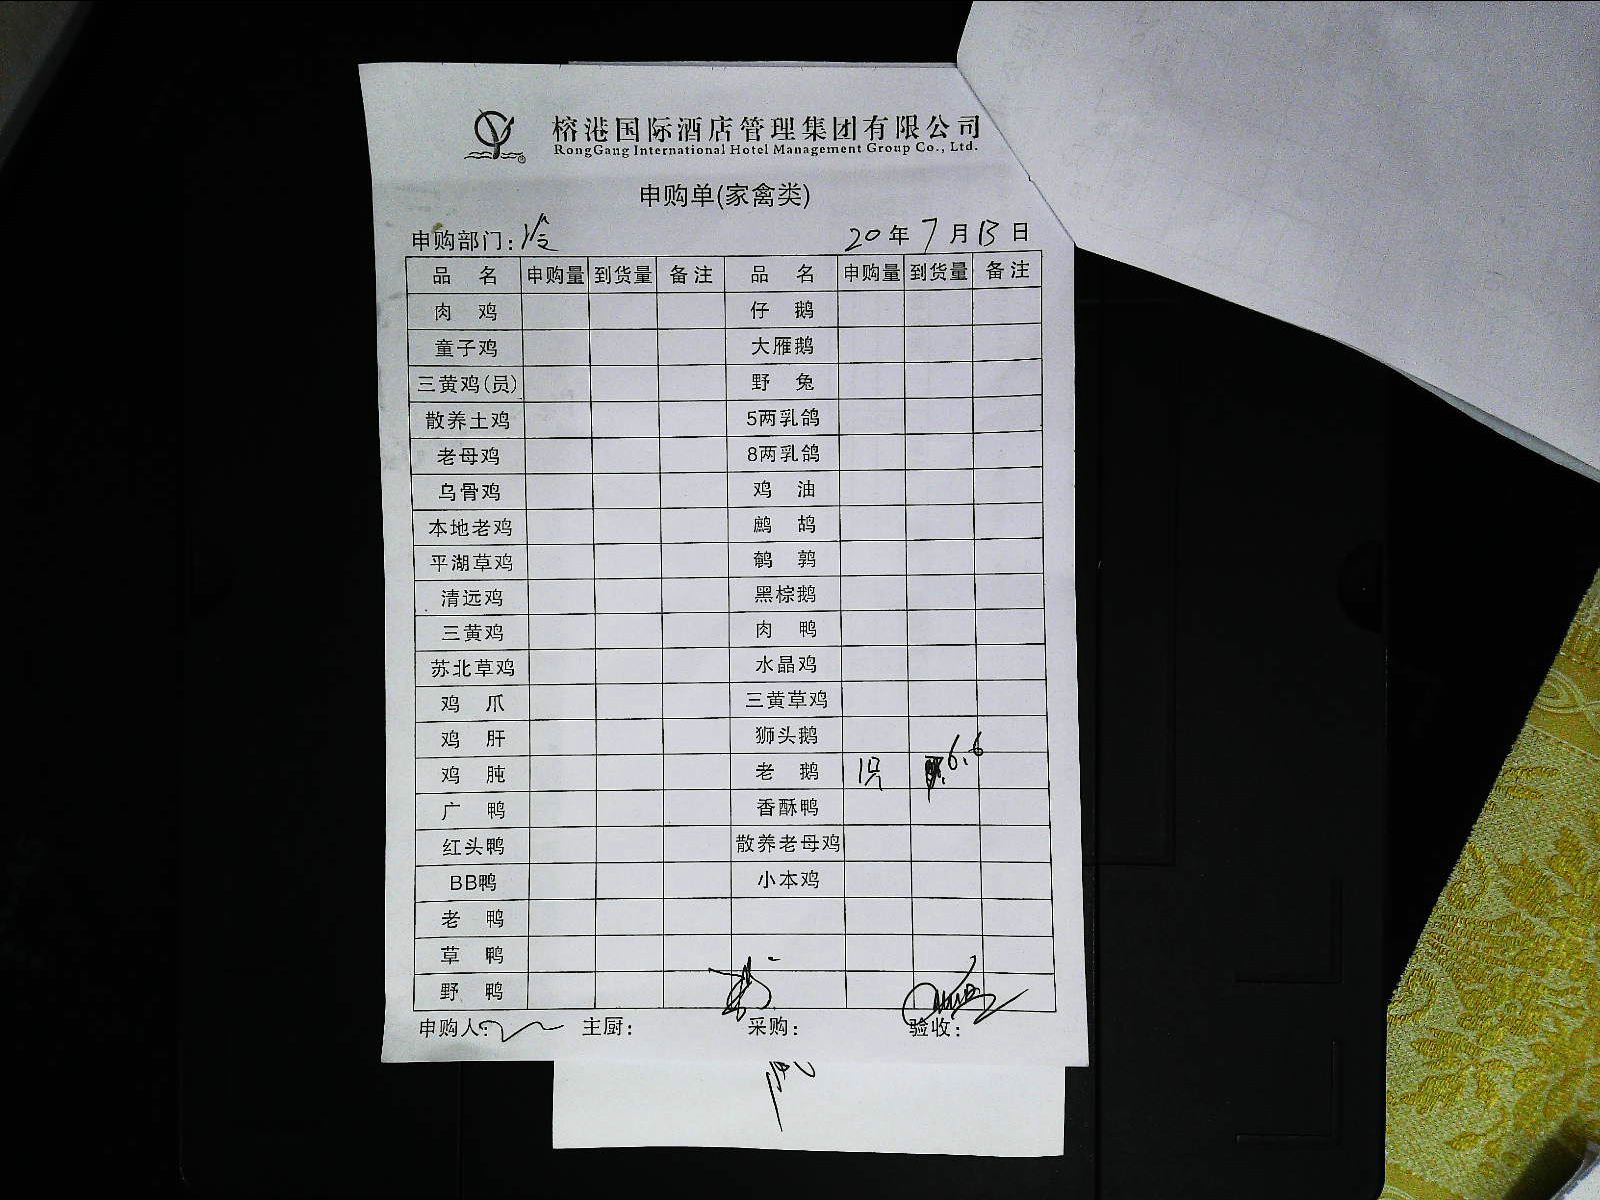 榕港国际酒店管理集团有限公司
RongGang International Hotel Management Group Co., Ltd.
申购单(家禽类)
申购部门: 20 年 7 月 13 日
品 名 申购量 到货量 备注 品 名 申购量 到货量 备注
肉 鸡 仔 鹅
童子鸡 大雁鹅
三黄鸡(员) 野 兔
散养土鸡 5两乳鸽
老母鸡 8两乳鸽
乌骨鸡 鸡 油
本地老鸡 鹧 鸪
平湖草鸡 鹌 鹑
清远鸡 黑棕鹅
三黄鸡 肉 鸭
苏北草鸡 水晶鸡
鸡 爪 三黄草鸡
鸡 肝 狮头鹅
鸡 肫 老 鹅 1只 6.6
广 鸭 香酥鸭
红头鸭 散养老母鸡
BB鸭 小本鸡
老 鸭
草 鸭
野 鸭
申购人: 主厨: 采购: 验收: